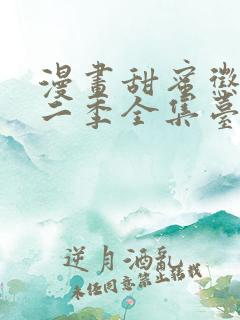 漫畫甜蜜懲
二季全集臺
逆月酒亂
未经同意禁止转载